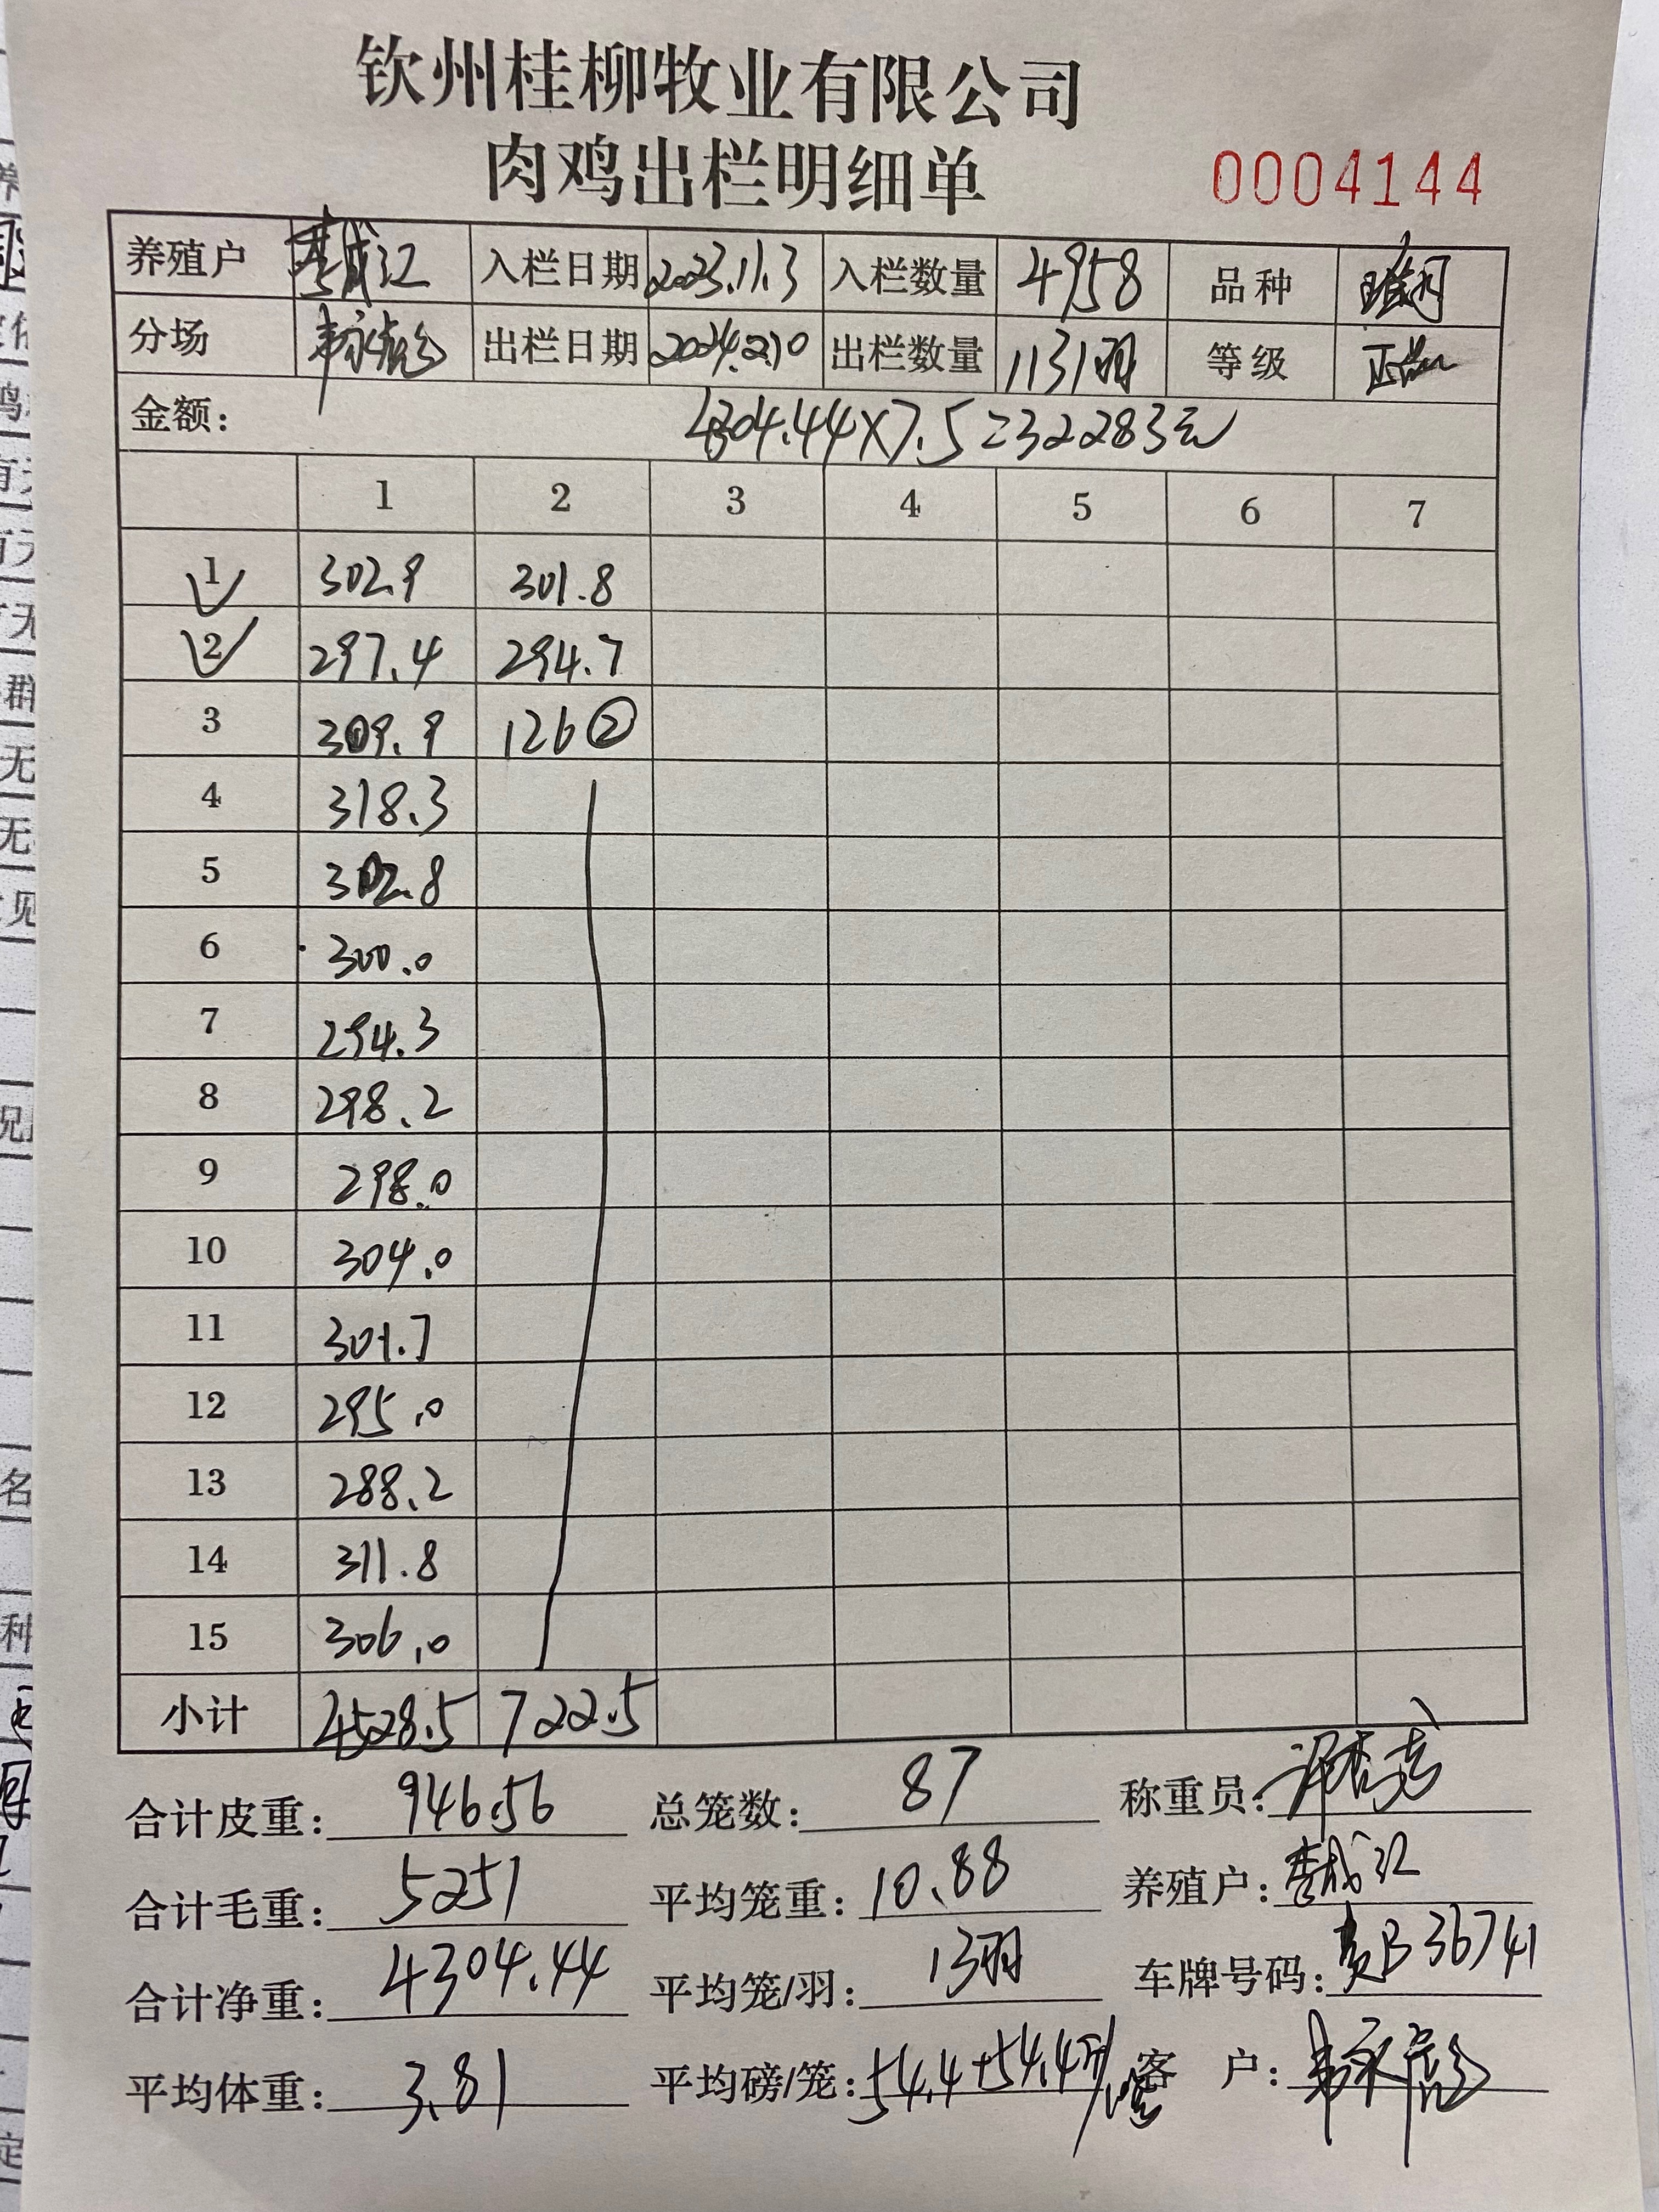 钦州桂柳牧业有限公司
肉鸡出栏明细单
0004144
养殖户 李成江 入栏日期 2023.11.3 入栏数量 4958 品种
分场 出栏日期 2024.2.10 出栏数量 1131羽 等级 正品
金额: 4304.44×7.5=32283元
1 2 3 4 5 6 7
1 302.9 301.8
2 297.4 294.7
3 309.9 126②
4 318.3
5 302.8
6 300.0
7 294.3
8 298.2
9 298.0
10 304.0
11 301.7
12 295.0
13 288.2
14 311.8
15 306.0
小计 4528.5 722.5
合计皮重: 946.56 总笼数: 87 称重员:
合计毛重: 5251 平均笼重: 10.88 养殖户: 李成江
合计净重: 4304.44 平均笼/羽: 13羽 车牌号码: B36741
平均体重: 3.81 平均磅/笼: 54.4+54.4 客 户: